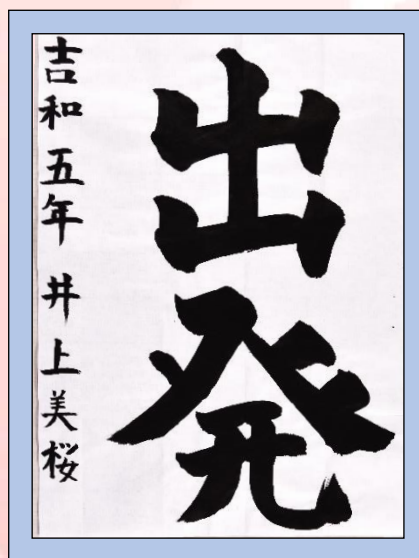 出発
吉和 五年 井上美桜